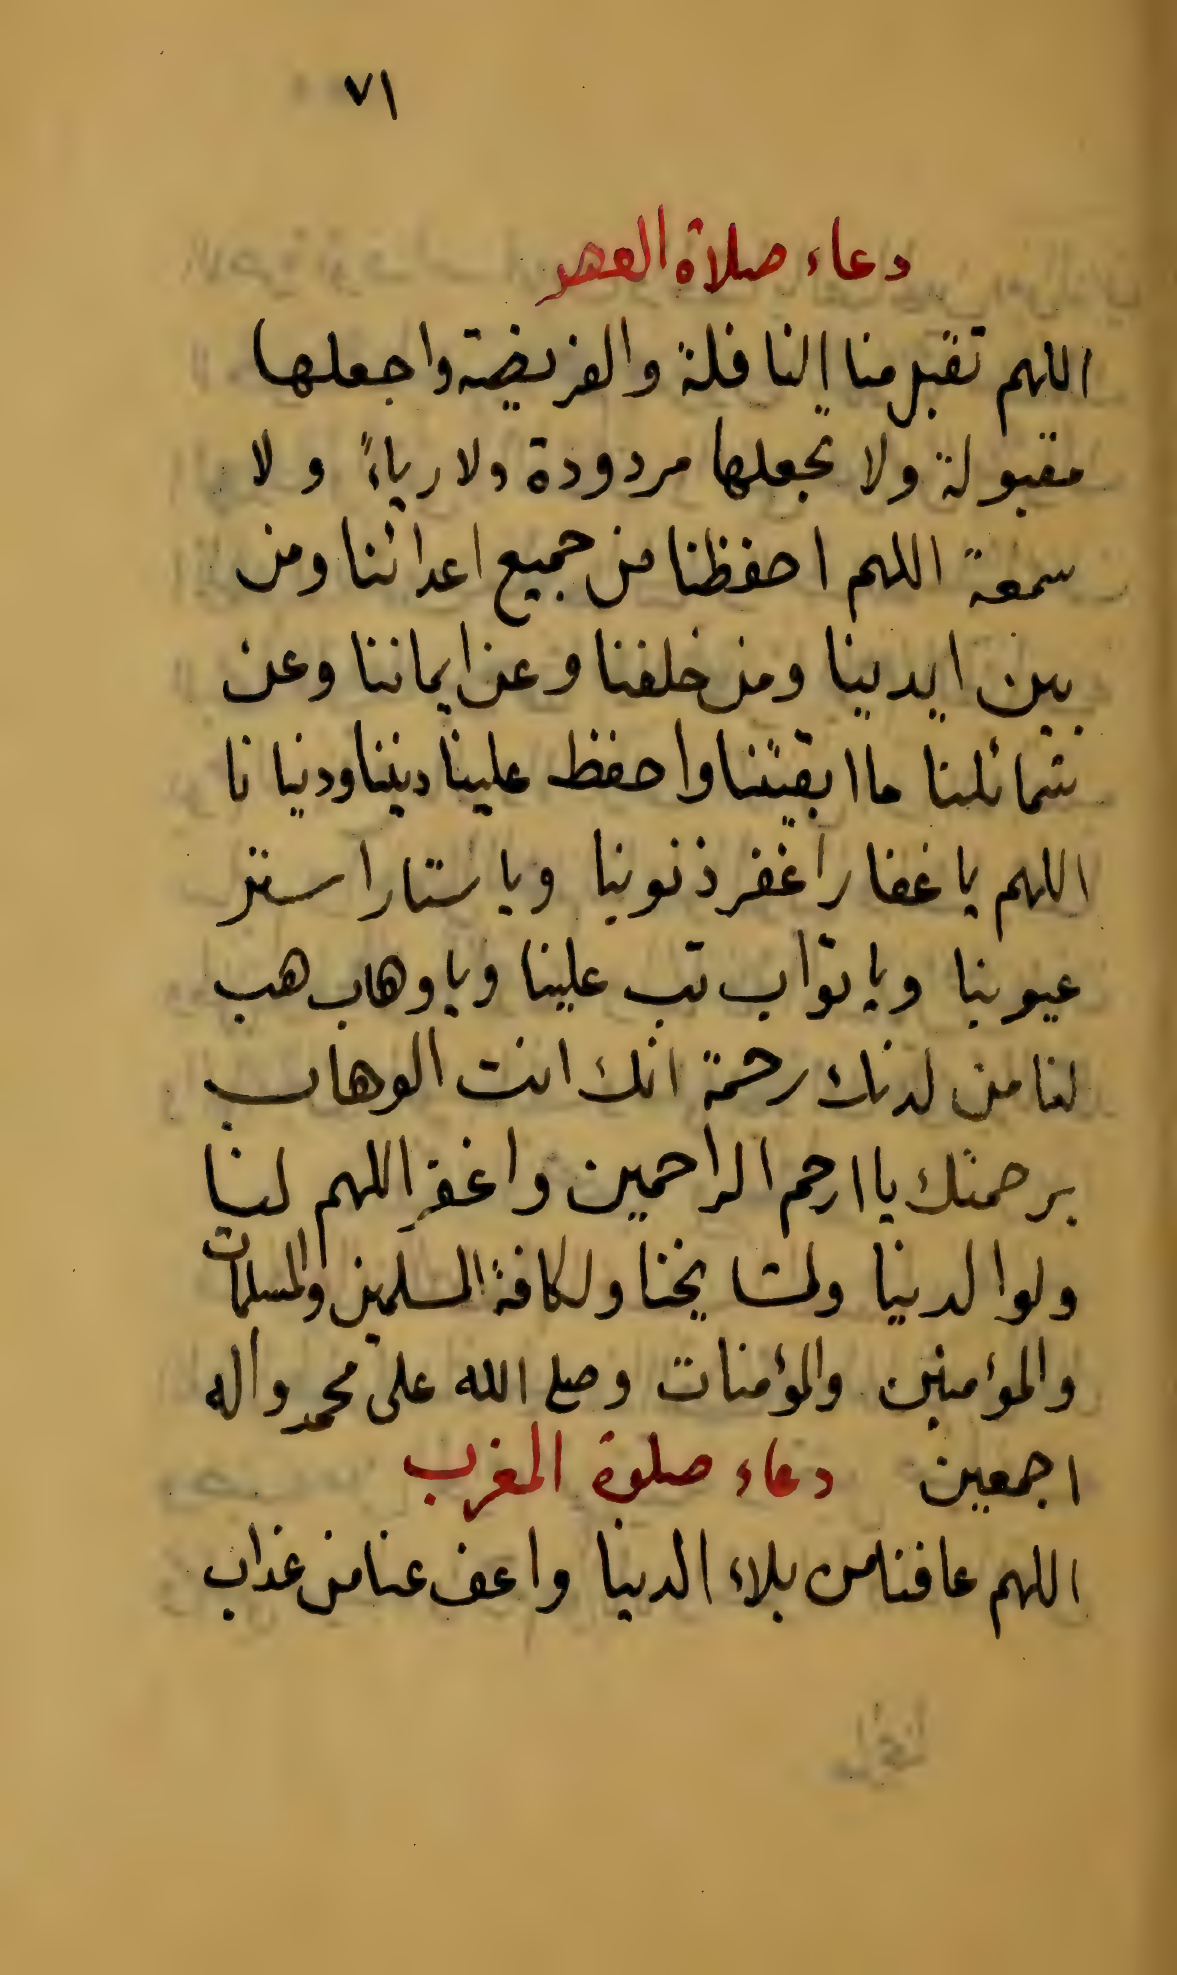 ٧١
دعاء صلاة العصر
اللهم تقبل منا النافلة والفريضة واجعلها
مقبولة ولا تجعلها مردودة ولا رياءً ولا
سمعة اللهم احفظنا من جميع اعدائنا ومن
بين ايدينا ومن خلفنا وعن ايماننا وعن
شمائلنا ما ابقيتنا واحفظ علينا ديننا ودنيانا
اللهم يا غفار اغفر ذنوبنا ويا ستار استر
عيوبنا ويا تواب تب علينا ويا وهاب هب
لنا من لدنك رحمة انك انت الوهاب
برحمتك يا ارحم الراحمين واغفر اللهم لنا
ولوالدينا ولمشايخنا ولكافة المسلمين والمسلمات
والمؤمنين والمؤمنات وصلى الله على محمد وآله
اجمعين دعاء صلوة المغرب
اللهم عافنا من بلاء الدنيا واعف عنا من عذاب